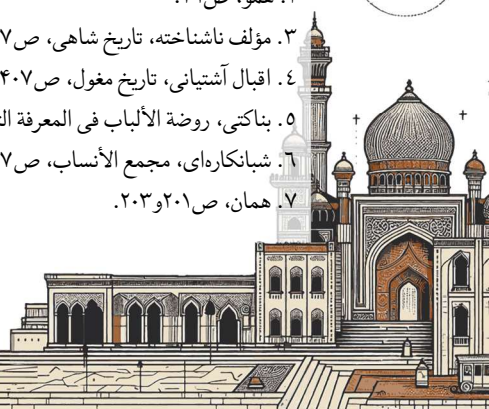 ۳. مؤلف ناشناخته، تاریخ شاهی، ص۷
۴. اقبال آشتیانی، تاریخ مغول، ص۴۰۷
۵. بناکتی، روضة الألباب فی المعرفة
۶. شبانکاره‌ای، مجمع الأنساب، ص۷
۷. همان، ص۲۰۱و۲۰۳.